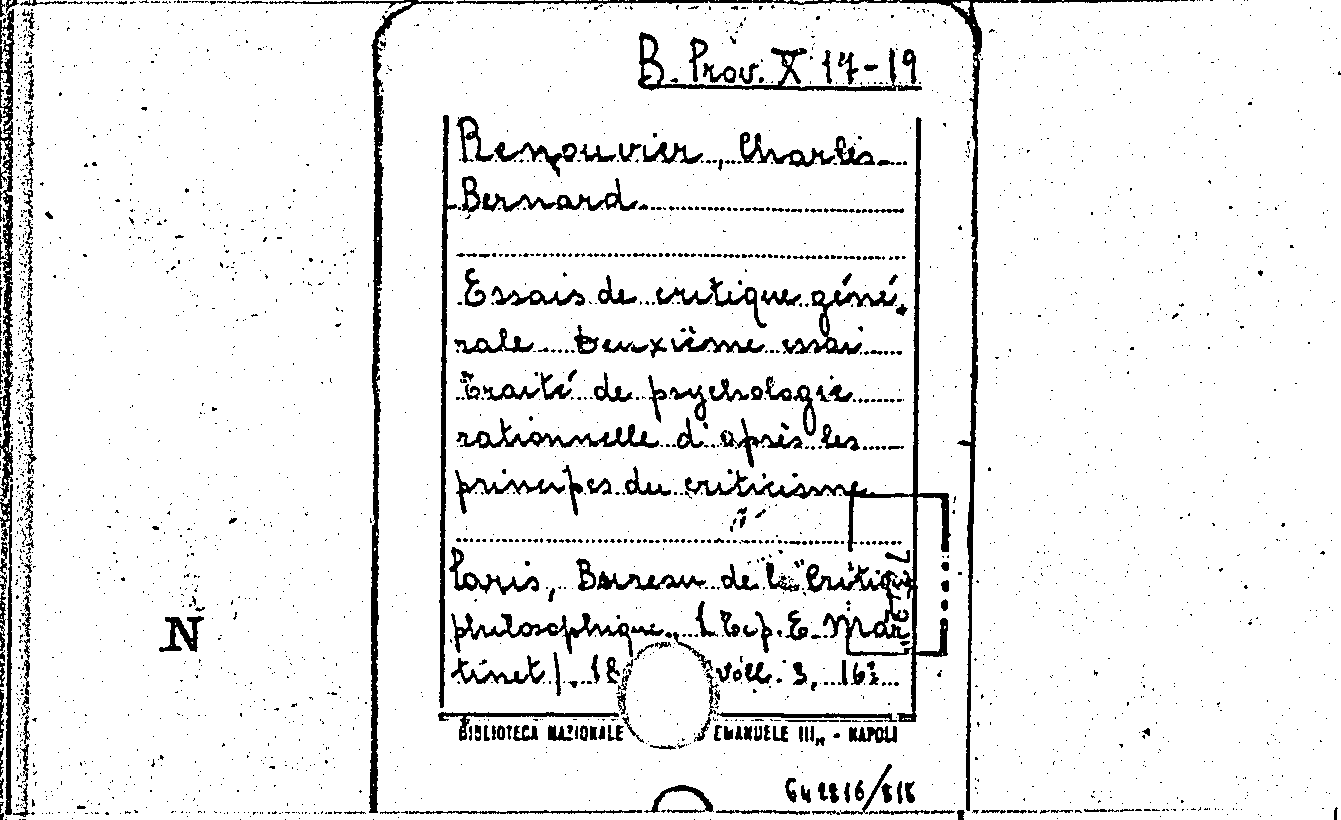 B. Prov. X 17-19
Renouvier, Charles
Bernard
Essais de critique géné-
rale. Deuxième essai
Traité de psychologie
rationnelle d'après les
principes du criticisme
Paris, Bureau de la "Critique
philosophique" (Tip. E. Mar
tinet). 18 voll. 3, 16º
BIBLIOTECA NAZIONALE EMANUELE III„ - NAPOLI
N